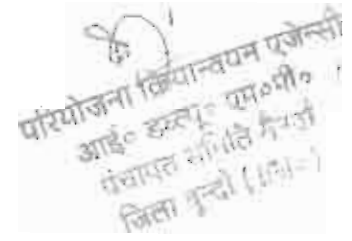 परियोजना क्रियान्वयन एजेन्सी
आई० डब्ल्यू० एम०पी०
पंचायत समिति
जिला बून्दी